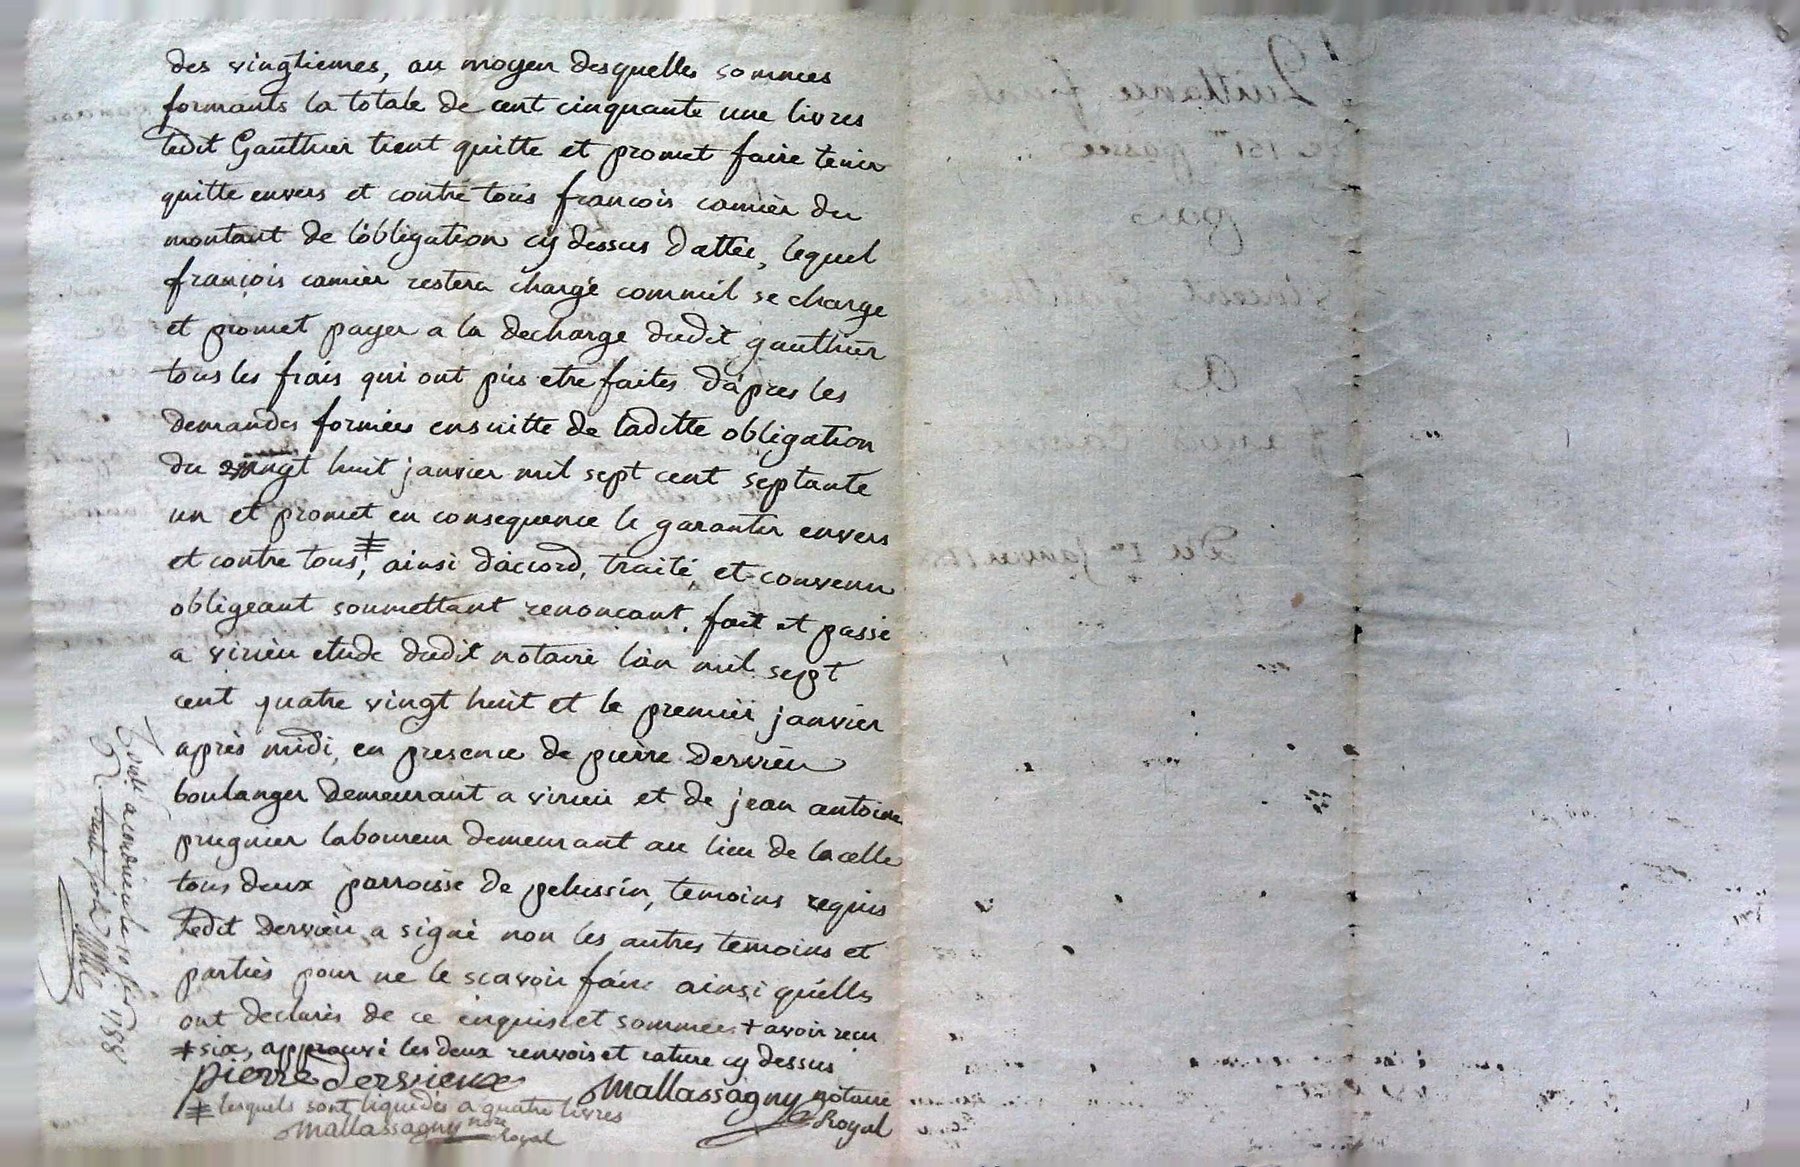 des vingtiemes, au moyen desquelles sommes
formants la totale de cent cinquante une livres
ledit Gauthier tient quitte et promet faire tenir
quitte envers et contre tous francois camier du
montant de l'obligation cy dessus dattée, lequel
françois camier restera chargé commil se charge
et promet payer a la decharge dudit gauthier
tous les frais qui ont pus etre faites d'apres les
demandes formées ensuitte de laditte obligation
du vingt huit janvier mil sept cent septante
un et promet en consequence le garantir envers
et contre tous ≢, ainsi d'accord, traité et convenu
obligeant soumettant renoncant. fait et passé
a virieu etude dudit notaire l'an mil sept
cent quatre vingt huit et le premier janvier
après midi, en presence de pierre Dervieu
boulanger demeurant a virieu et de jean antoine
prugnier laboureur demeurant au lieu de lacelle
tous deux parroisse de pelussin, temoins requis
Ledit Dervieu a signé non les autres temoins et
parties pour ne le scavoir faire ainsi qu'elles
ont declarés de ce enquis et sommées + avoir reçu
+ six, approuvé les deux renvois et rature cy dessus
pierre dervieux
Mallassagny notaire
Royal
≢ lesquels sont liquidés a quatre livres
Mallassagny no.re Royal
a condrieu le 10 1788
Quittance finale
de 151 passée
par
Vincent Gauthier
A
françois Camier
Du 1er Janvier